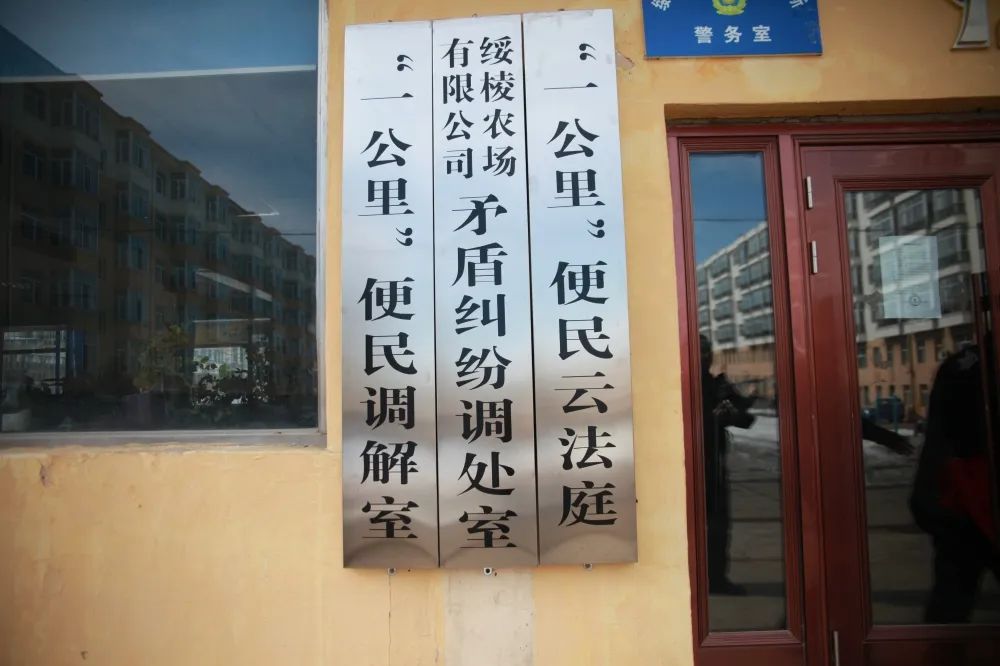 “一公里”便民调解室
绥棱农场
有限公司
矛盾纠纷调处室
“一公里”便民云法庭
警务室